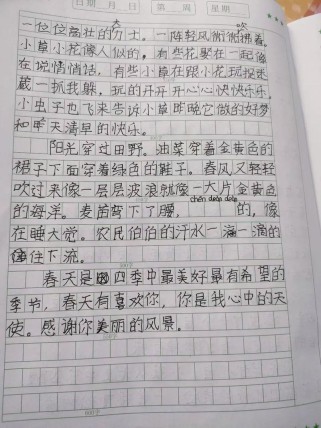 日期 月 日 第 周 星期
大 吹
一位位高壮的力士。一阵轻风俯俯拂着。
小草小花像人似的，有些花娶在一起像
在说悄悄话，有些小草在跟小花玩捉迷
藏一抓我躲，玩的开开开心心快快乐乐。
小虫子也飞来告诉小草昨晚它做的好梦
和昨天清早的快乐。
阳光穿过田野。油菜穿着金黄色的
裙子下面穿着绿色的鞋子。春风又轻轻
吹过来像一层层波浪就像一大片金黄色
的海洋。麦苗弯下了腰，chén diàn diàn的，像
在睡大觉。农民伯伯的汗水一滴一滴的
往下流。
春天是四季中最美好最有希望的
季节，春天有喜欢你，你是我心中的天
使。感谢你美丽的风景。